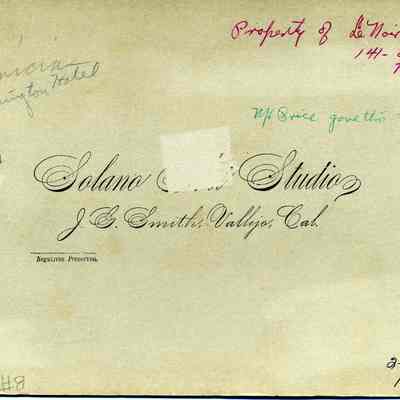 Property of Le Noir
141-
Hotel
Mr Price gave this
Solano Studio
J. G. Smith, Vallejo, Cal.
Negatives Preserved.
2-
1
#8